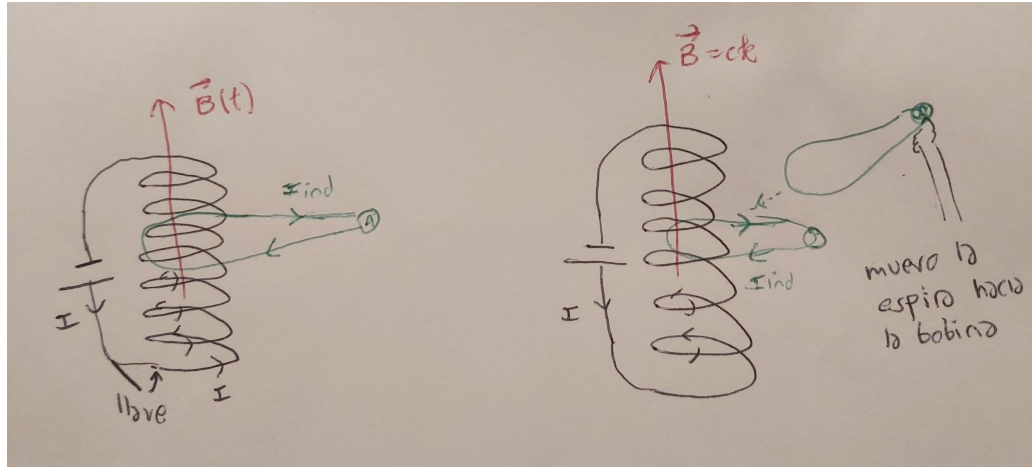 B⃗(t)
I ind
A
I
llave
I
B⃗=cte
I
I ind
muevo la
espira hacia
la bobina